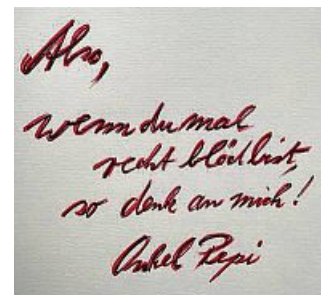 Also,
wenn du mal
recht blöd bist,
so denk an mich!
Onkel Pepi